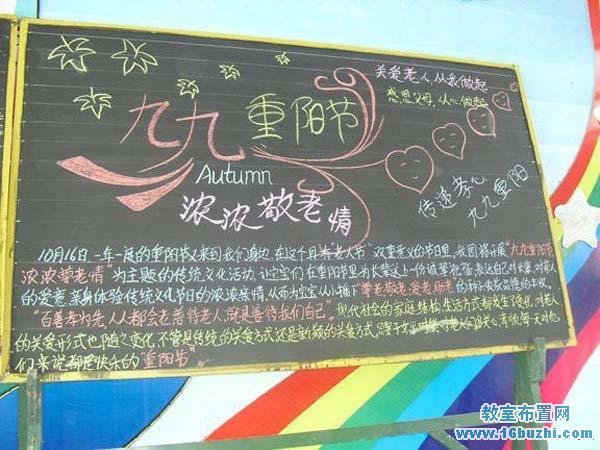 关爱老人,从我做起
感恩父母,从心做起
九九重阳节
Autumn
浓浓敬老情
传递孝心
九九重阳
10月16日,一年一度的重阳节又来到我们身边,在这个具有老人节"双重意义的节日里,我园将开展"九九重阳节
浓浓尊老情"为主题的传统文化活动,让宝宝们在重阳节里为长辈送上一份诚挚祝福,表达自己对长辈,对家人
的爱意,亲身体验传统文化节日的浓浓亲情,从而为宝宝从小播下"尊老、敬老、爱老、助老"的种子
"百善孝为先,人人都会老,善待老人,就是善待我们自己"。现代社会的家庭结构,生活方式都发生变化,对老人
的关爱形式也随之变化,不管是传统的关爱方式,还是新颖的关爱方式,每天对他
们来说都是快乐的"重阳节"
教室布置网
www.16buzhi.com